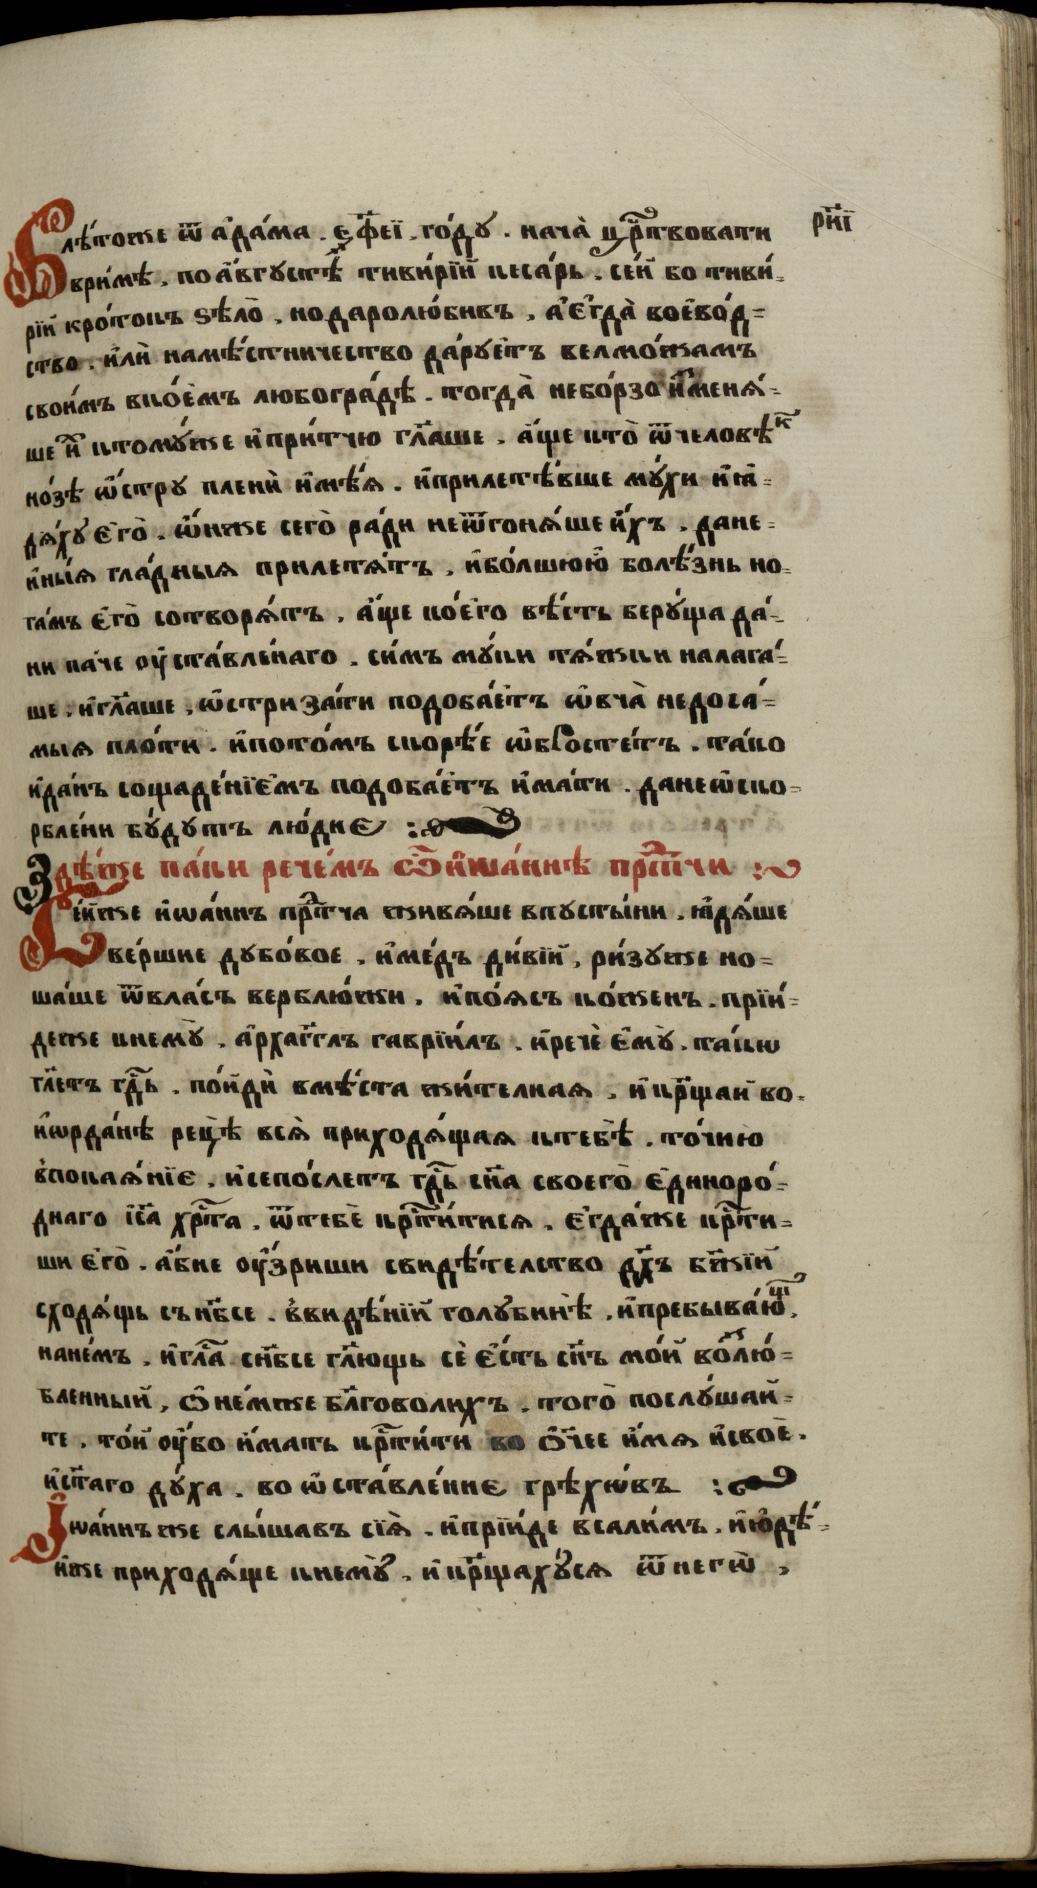 рн҃і
В лѣ́тоже ѿ а҆да́ма . ҂є҃фєї . го́дꙋ . нача̀ црⷭ҇твовати
в ри́мѣ . по а҆́вгꙋстѣ тиви́рїй кеса́рь . се́й бо тиви́-
рїй кро́токъ ѕѣло̀ , но даролю́бивъ , а҆ є҆гда̀ воево́д=
ство . и҆лѝ намѣ́стничество да́рꙋетъ велмо́жамъ
свои́мъ в ко́емъ любо гра́дѣ . тогда̀ небо́рзо и҆̀змѣнѧ́-
ше и҆̀ к томꙋ́же и҆ при́тчю гл҃аше . а҆́ще кто̀ ѿ человѣ́къ
но́зѣ ѡ҆́стрꙋ плени̂ и҆мѣ́ѧ . и҆ прилетѣ́вше мꙋ́хи и҆ ꙗ҆=
дѧ́хꙋ є҆го̀ . ѡ҆́нже сего̀ ра́ди не ѿгонѧ́ше и҆́хъ . да не-
и҆ны́ѧ гла́дныѧ прилетѧ́тъ , и҆ бо́лшюю болѣ́знь но-
га́мъ є҆гѡ̀ сотворѧ́тъ . а҆́ще ко́его вѣ́сть берꙋ́ща да́-
ни па́че оу҆ста́вленаго . си́мъ мꙋ́ки тѧ́жки налага́=
ше , и҆ гл҃аше , ѡ҆стриза́ти подоба́етъ ѡ҆вча̀ недоса́=
мыѧ пло́ти . и҆ пото́мъ скорѣ́е ѡ҆бростетъ . тако
и҆ да́нь со щаде́нїемъ подоба́етъ и҆ма́ти . да не ѡ҆ско=
рблени бꙋ́дꙋтъ лю́дие :~
Здѣ́же па́ки рече́мъ ѡ҆ и҆ѡа́ннѣ прⷣт҇чи :~
Се́йже и҆ѡа́ннъ прⷣт҇ча живѧ́ше в пꙋсты́ни , ꙗ҆дѧ́ше
ве́ршие дꙋбо́вое , и҆ ме́дъ ди́вїй , ри́зꙋже но=
ша́ше ѿ вла́съ верблю́жи , и҆ по́ѧсъ ко́женъ . прїи́=
деже к немꙋ̀ , а҆рха́гг҃лъ гаврїи́лъ , и҆ речѐ є҆мꙋ̀ . та́кѡ
гл҃етъ гдⷭ҇ь . пойдѝ в мѣ́ста жи́телнаѧ , и҆ крⷭ҇щай во-
и҆ѡрда́нѣ рецѣ̀ всѧ̀ приходѧ́щаѧ к тебѣ̀ . то́чию
в покаѧ́нїе , и҆ се по́слетъ гдⷭ҇ь сн҃а своего̀ є҆диноро́=
днаго і҆с҃а хрⷭ҇та , ѿ тебѐ крⷭ҇ти́тисѧ . є҆гда́же крⷭ҇ти=
ши є҆го̀ . а҆́бие оу҆́зриши свидѣ́телство дх҃ъ бж҃їй
сходѧ́щь съ нб҃се . в видѣ́нїй голꙋ́бинѣ , и҆ пребыва́ющ
на не́мъ , и҆ гла́съ с нб҃се гл҃ющь сѐ є҆́сть сн҃ъ мо́й возлю́=
бленный , ѡ҆ не́мже бл҃говоли́хъ . того̀ послꙋ́шай-
те . то́й оу҆́бо и҆́мать крⷭ҇ти́ти во ѻ҆́ч҃ее и҆́мѧ и҆ своѐ .
и҆ ст҃аго дꙋ́ха . во ѡ҆ставле́ние грѣхѡ́въ :~
І҆ѡа́ннъ же слы́шавъ сїѧ̀ . и҆ прїи́де в салимъ . и҆ юдѣ́=
и҆же приходѧ́ще к немꙋ̀ . и҆ крⷭ҇щахꙋ́сѧ ѿ негѡ̀ ,